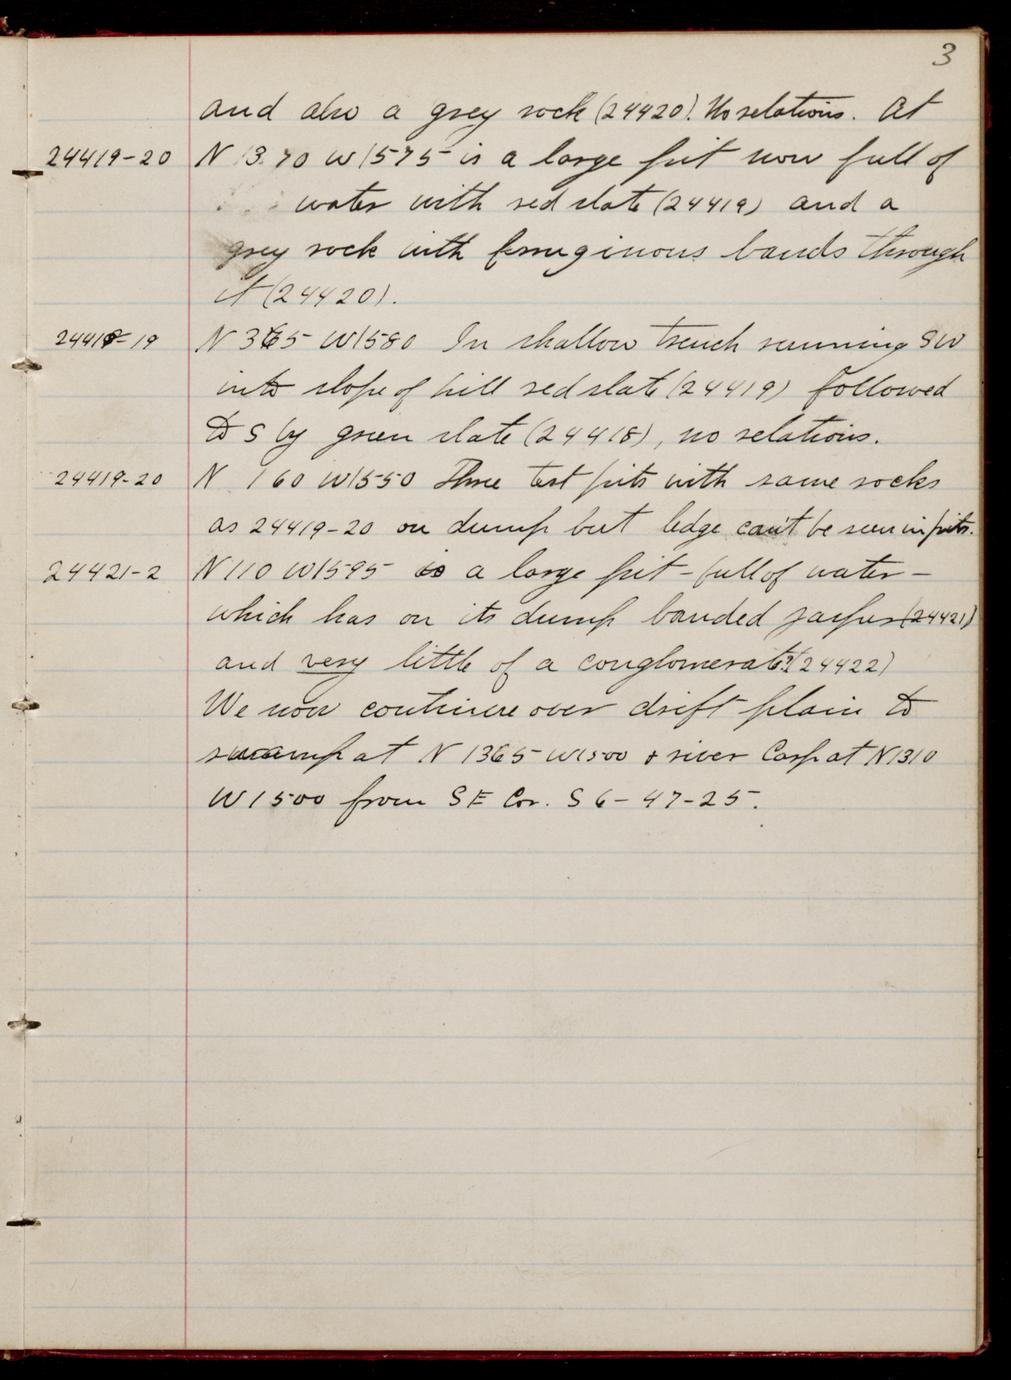 3
and also a grey rock (24420). No relations. At
24419-20 N 1370 W1575 is a large pit now full of
water with red slate (24419) and a
grey rock with ferruginous bands through
it (24420).
24418-19 N 365 W1580 In shallow trench running SW
into slope of hill red slate (24419) followed
to S by green slate (24418), no relations.
24419-20 N 160 W1550 Three test pits with same rocks
as 24419-20 on dump but ledge can't be seen in pits.
24421-2 N110 W1595 is a large pit - full of water -
which has on its dump banded jasper (24421)
and very little of a conglomerate? (24422)
We now continue over drift plain to
swamp at N 1365 W1500 & river Carp at N1310
W1500 from SE Cor. S 6-47-25.